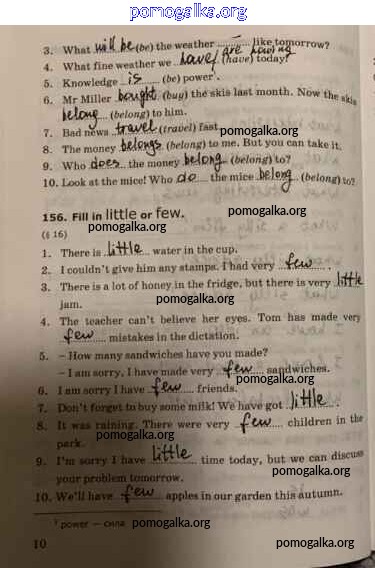 pomogalka.org
3. What will be (be) the weather ........ like tomorrow?
4. What fine weather we have/are having (have) today!
5. Knowledge is (be) power¹.
6. Mr Miller bought (buy) the skis last month. Now the skis
belong (belong) to him.
7. Bad news travel (travel) fast
pomogalka.org
8. The money belongs (belong) to me. But you can take it.
9. Who does the money belong (belong) to?
10. Look at the mice! Who do the mice belong (belong) to?
pomogalka.org
156. Fill in little or few.
pomogalka.org
(§ 16)
1. There is little water in the cup.
pomogalka.org
2. I couldn't give him any stamps. I had very few .
3. There is a lot of honey in the fridge, but there is very little
jam.
pomogalka.org
4. The teacher can't believe her eyes. Tom has made very
few mistakes in the dictation.
pomogalka.org
5. – How many sandwiches have you made?
– I am sorry, I have made very few sandwiches.
pomogalka.org
6. I am sorry I have few friends.
7. Don't forget to buy some milk! We have got little .
pomogalka.org
8. It was raining. There were very few children in the
park.
pomogalka.org
9. I'm sorry I have little time today, but we can discuss
your problem tomorrow.
pomogalka.org
10. We'll have few apples in our garden this autumn.
¹ power — сила
pomogalka.org
10
pomogalka.org